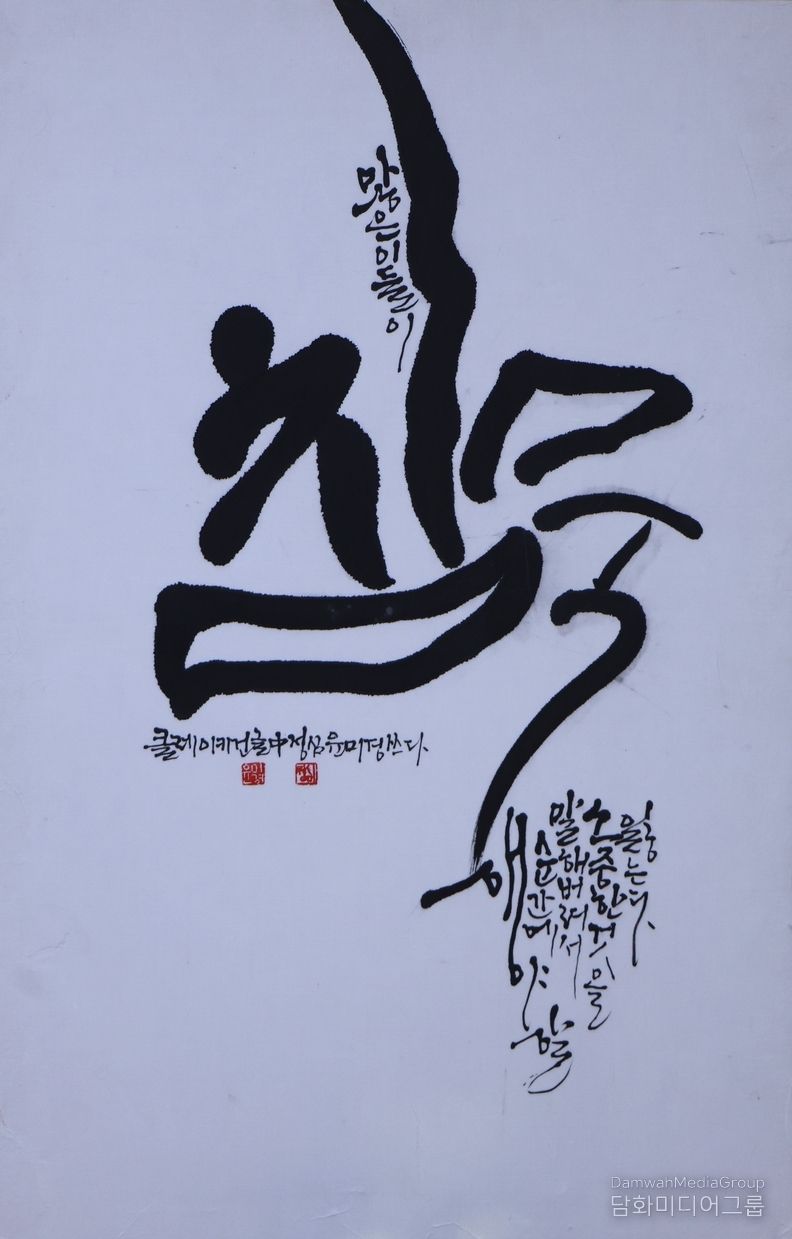 많은이들이
침묵
해야 할
순간에
말해버려서
소중한것을
잃는다.
클레이키건글中정심윤미경쓰다.
DamwahMediaGroup
담화미디어그룹